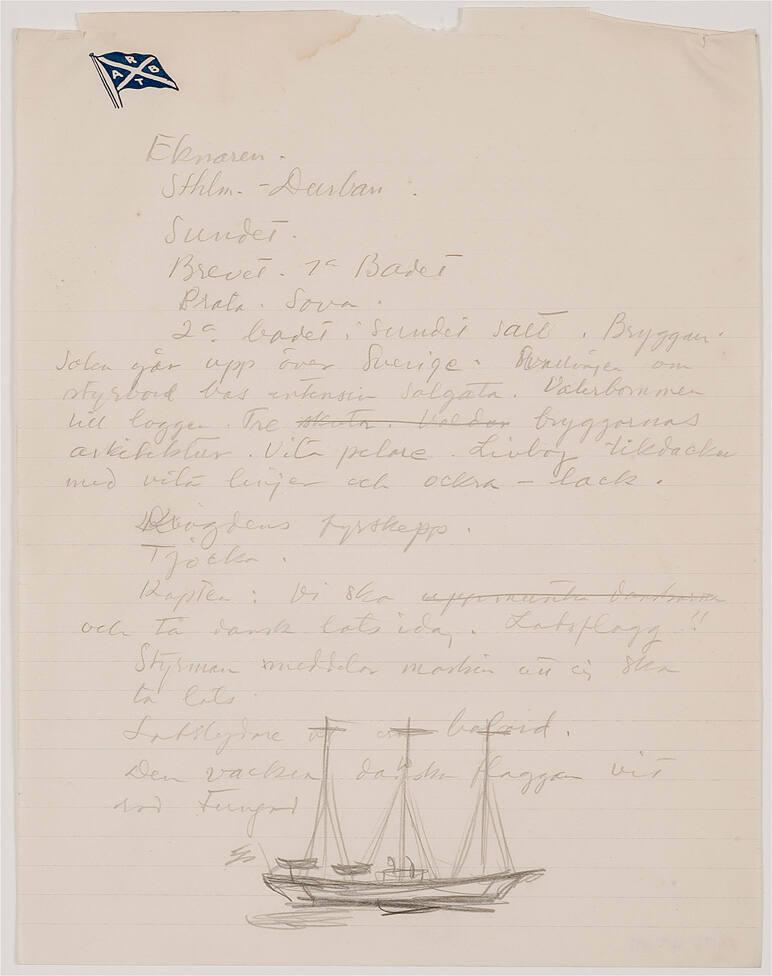 A R B T
Eknaren.
Sthlm. - Durban.
Sundet.
Brevet. 1a Badet
Prata. Sova.
2a badet i Sundet salt. Bryggan.
Solen går upp över Sverige. om
styrbord bas intensiv solgata.
till loggen. Tre skutor. bryggornas
arkitektur. Vita pelare. Livbåt tikdäcken
med vita linjer och ockra - lack.
Drogdens fyrskepp.
Tjocka.
Kapten: Vi ska uppmuntra danskarna
och ta dansk lots idag. Lotsflagg!!
Styrman meddelar maskin att vi ska
ta lots.
om babord.
Den vackra danska flaggan vit
röd